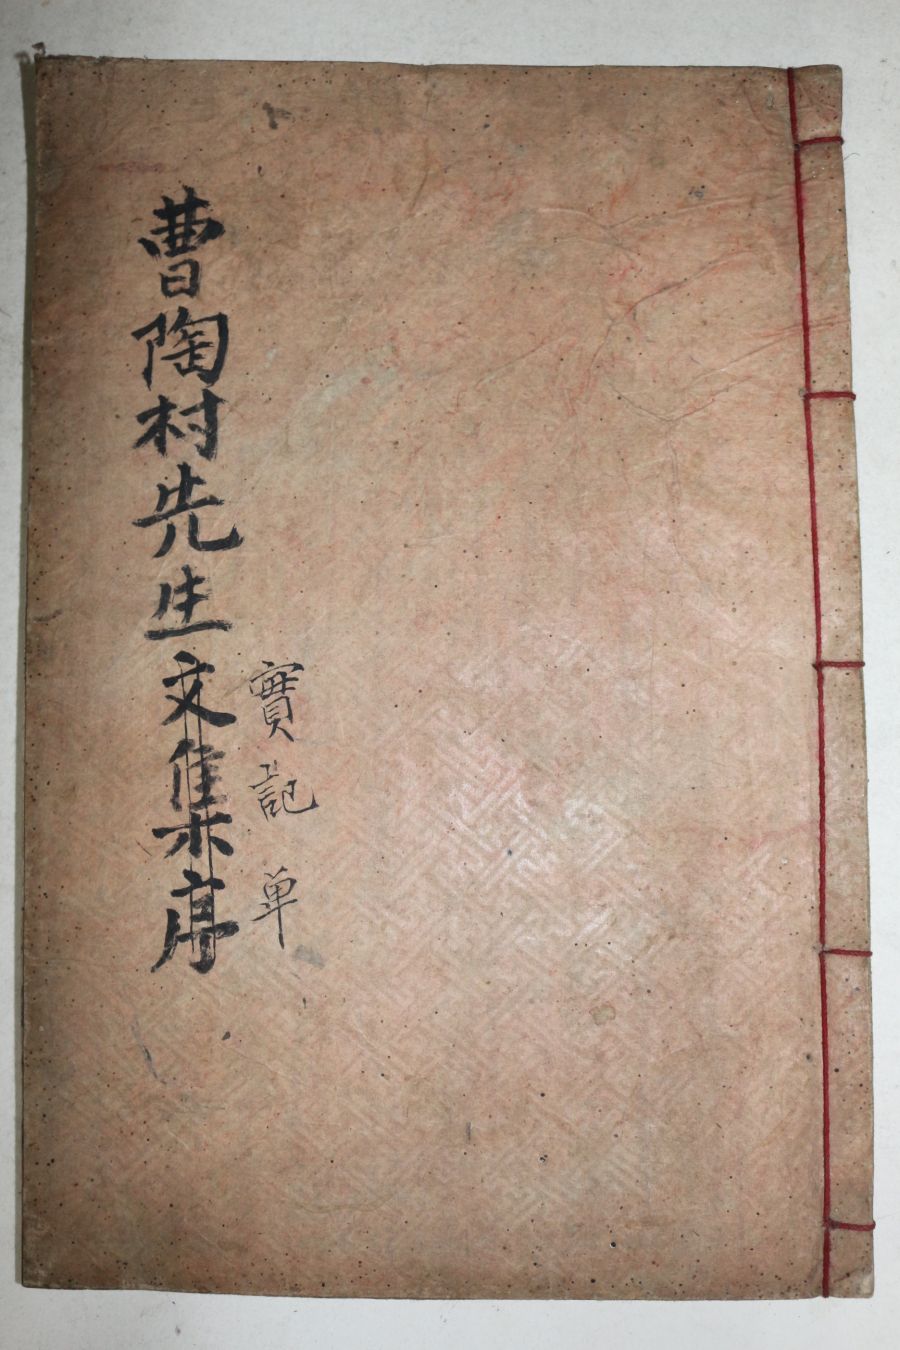 曹陶村先生文集序
實記 単